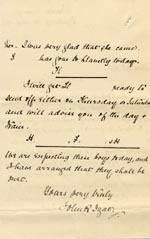 for. I was very glad that she came.
I has gone to Llanelly today.
H
I will get H ready to
send off either on Thursday or Saturday
and will advise you of the day &
train.
H J. SH
We are expecting these boys today, and
I have arranged that they shall be
met.
Yours very truly
John R